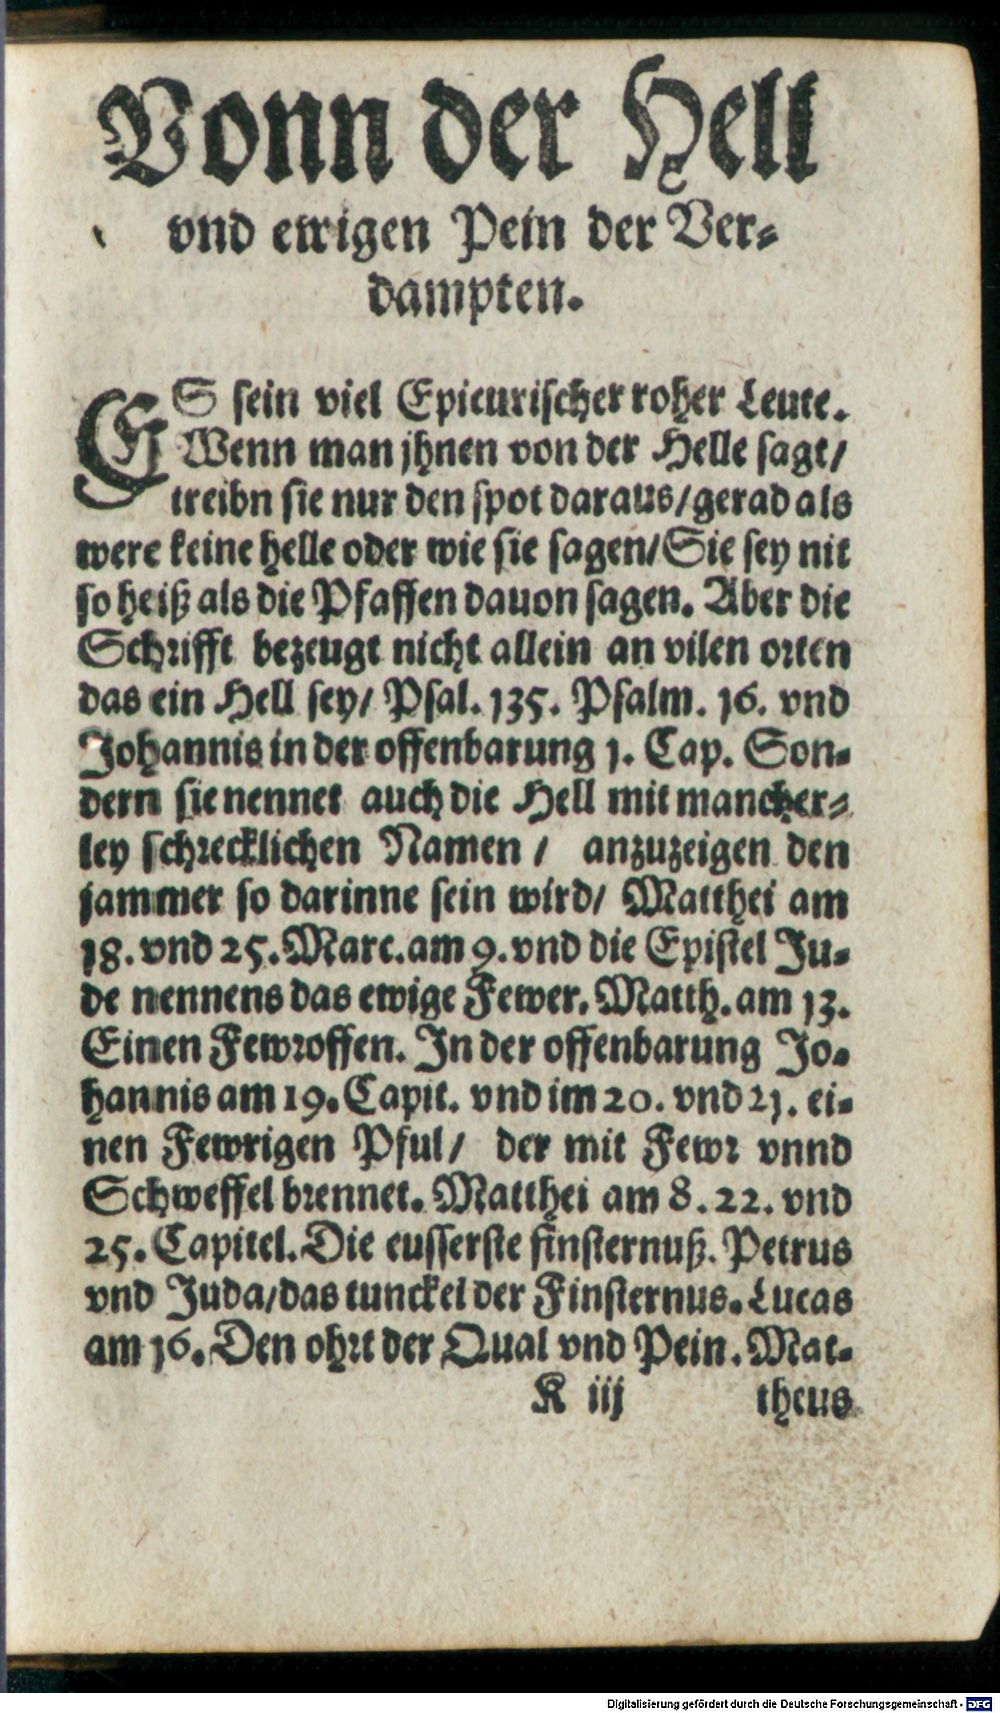 Vonn der Hell
vnd ewigen Pein der Ver⸗
dampten.
ES sein viel Epicurischer roher Leute.
Wenn man jhnen von der Helle sagt/
treibn sie nur den spot daraus/gerad als
were keine helle oder wie sie sagen/Sie sey nit
so heiß als die Pfaffen dauon sagen. Aber die
Schrifft bezeugt nicht allein an vilen orten
das ein Hell sey/ Psal. 135. Psalm. 16. vnd
Johannis in der offenbarung 1. Cap. Son⸗
dern sie nennet auch die Hell mit mancher⸗
ley schrecklichen Namen / anzuzeigen den
jammer so darinne sein wird/ Matthei am
18. vnd 25. Marc. am 9. vnd die Epistel Ju⸗
de nennens das ewige Fewer. Matth. am 13.
Einen Fewroffen. In der offenbarung Jo⸗
hannis am 19. Capit. vnd im 20. vnd 21. ei⸗
nen Fewrigen Pful/ der mit Fewr vnnd
Schweffel brennet. Matthei am 8. 22. vnd
25. Capitel. Die eusserste finsternuß. Petrus
vnd Juda/das tunckel der Finsternus. Lucas
am 16. Den ohrt der Qual vnd Pein. Mat⸗
K iij theus
Digitalisierung gefördert durch die Deutsche Forschungsgemeinschaft - DFG